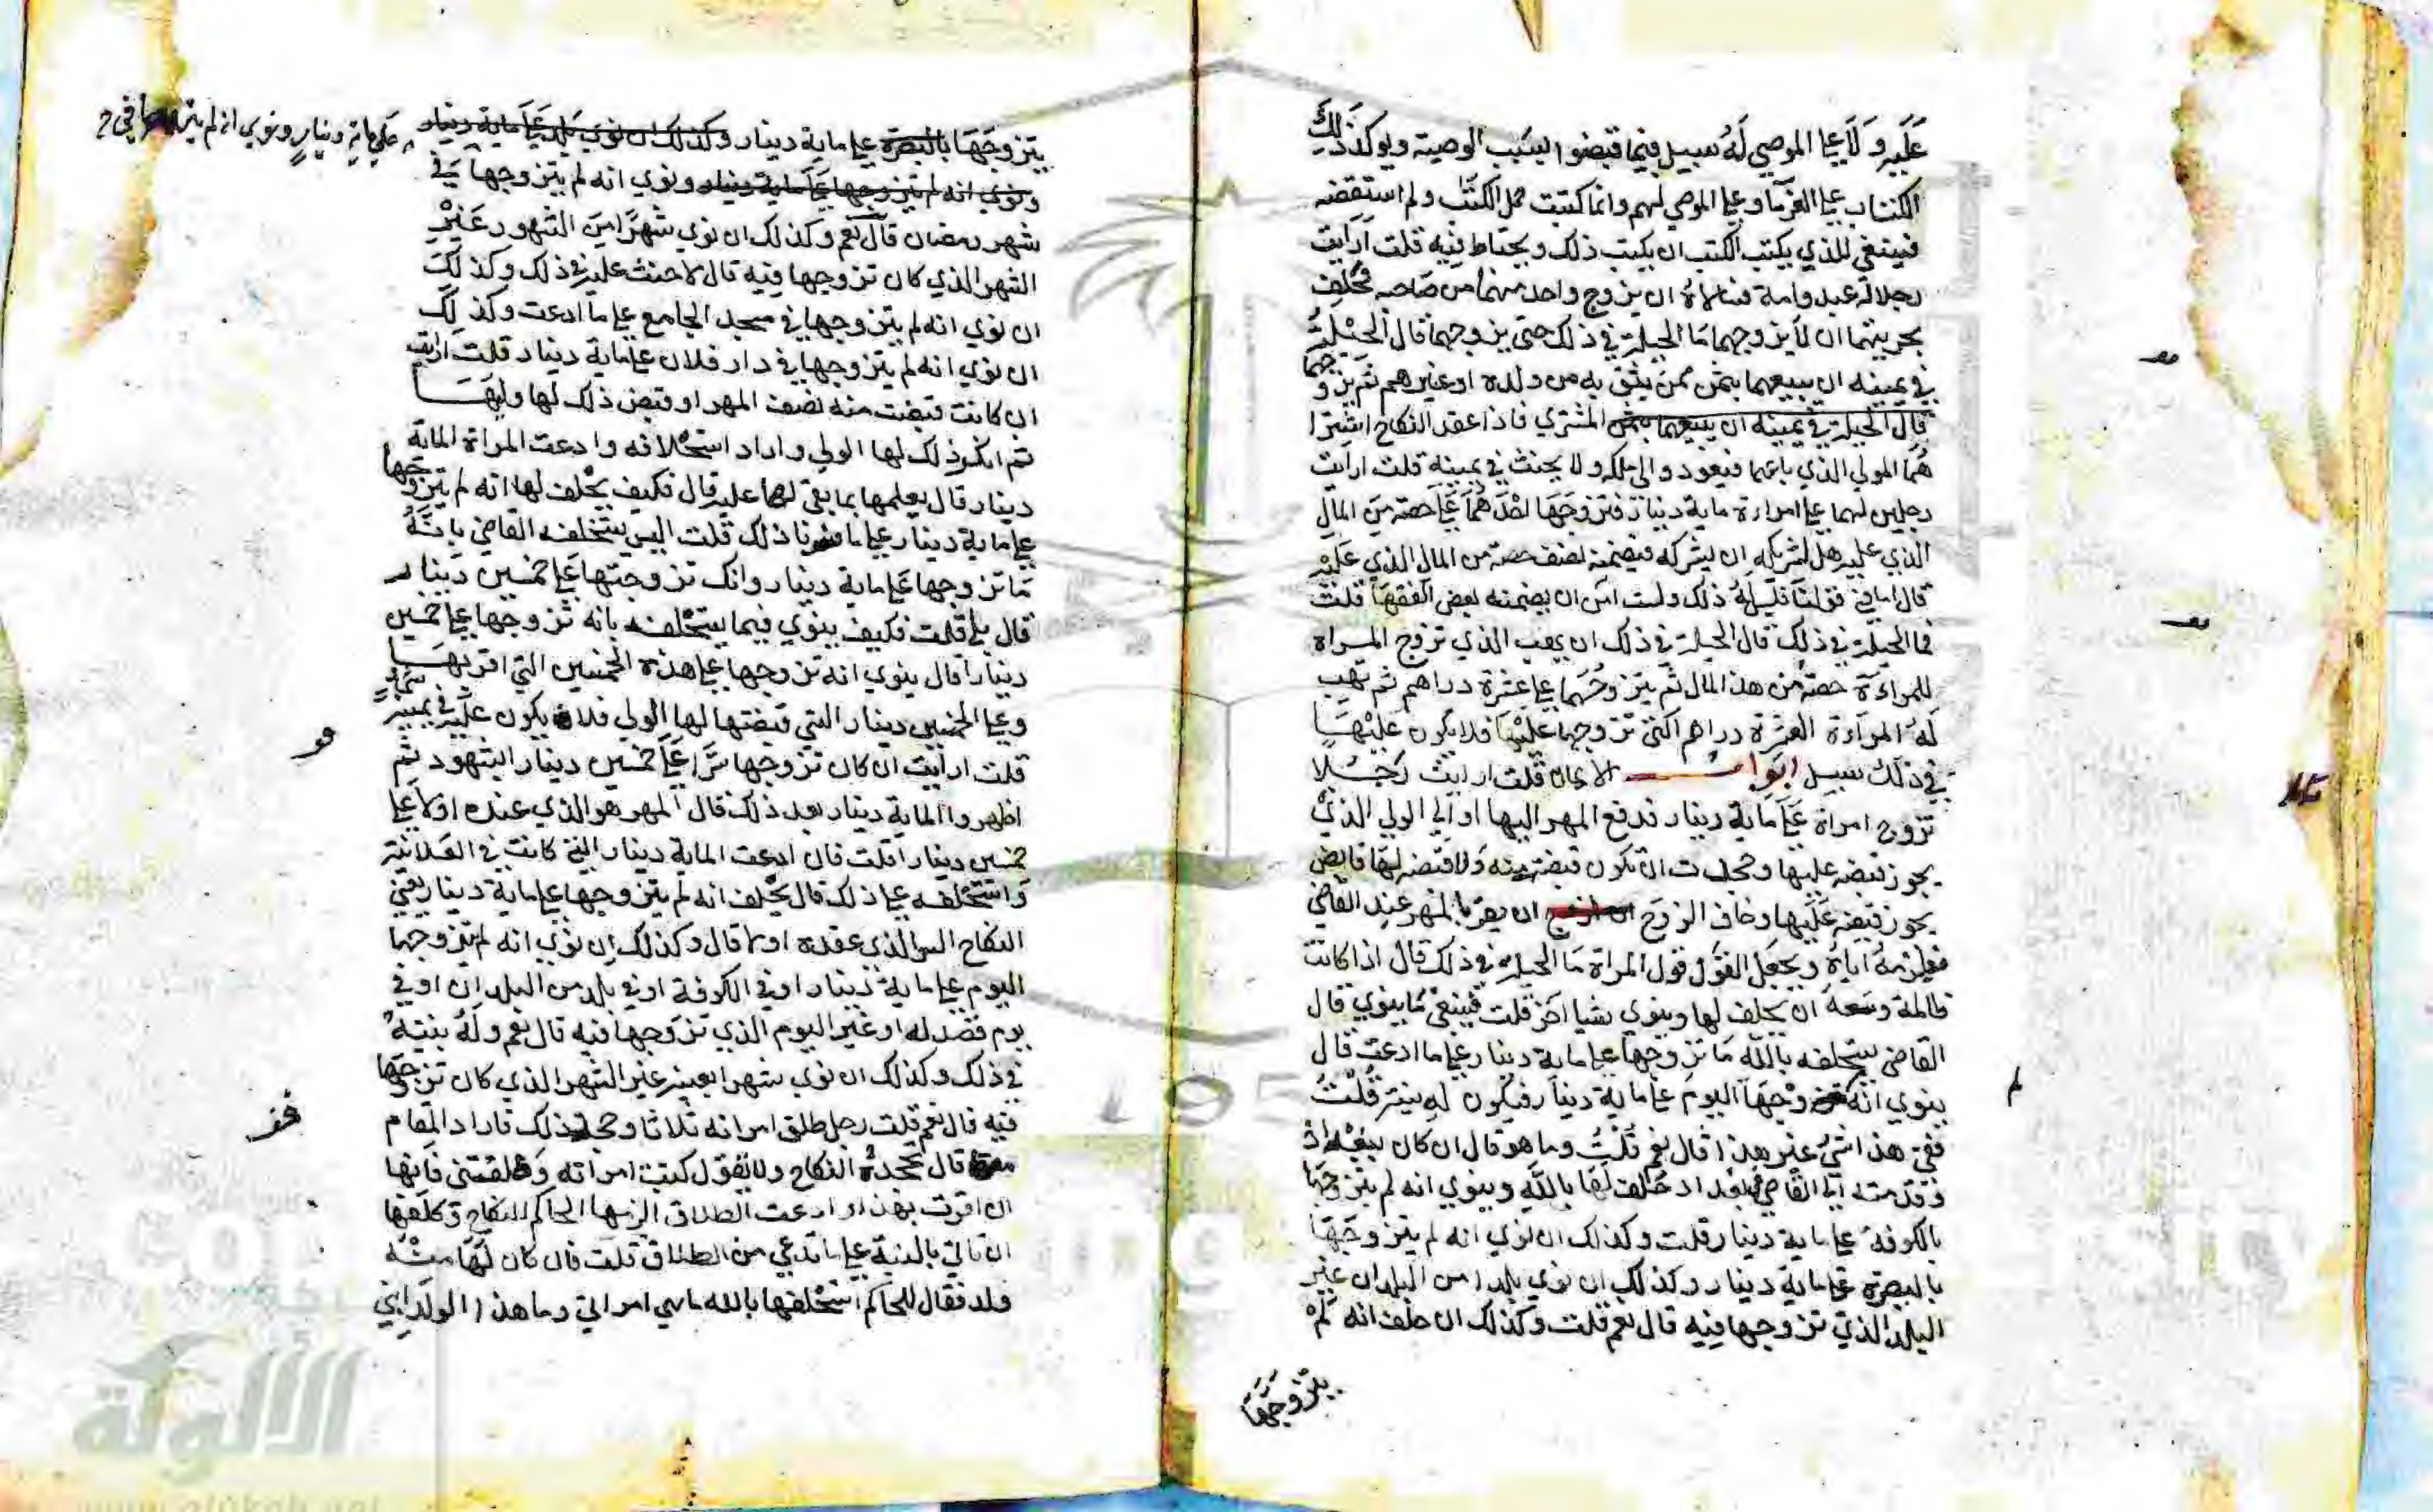 عليه ولا علي الموصي له سبيل فيما قبضوا بسبب الوصية ويوكد ذلك
الكتاب علي الغرما وعلي الموصي لهم وانما كتبت جمل الكتب ولم استقضه
فينبغي للذي يكتب الكتب ان يكتب ذلك ويحتاط فيه قلت ارايت
رجلا له عبد وامة فسالاه ان يزوج واحد منهما من صاحبه فحلف
بحريتهما ان لا يزوجهما ما الحيلة في ذلك حتي يزوجهما قال الحيلة
في يمينه ان يبيعهما بثمن ممن يثق به من ولده او غيرهم ثم يزوجهما
قال الحيلة في يمينه ان يبيعهما بثمن المشتري فاذا عقد النكاح اشترا
هما المولي الذي باعهما فيعود والي ملكه ولا يحنث في يمينه قلت ارايت
رجلين لهما علي امراءة ماية دينار فتزوجها احدهما علي حصته من المال
الذي عليه هل لشريكه ان يشركه فيضمنه نصف حصته من المال الذي عليه
قال اما في قولنا فليس له ذلك ولست امن ان يضمنه بعض الفقها قلت
فما الحيلة في ذلك قال الحيلة في ذلك ان يهب الذي تزوج المراة
للمراءة حصته من هذا المال ثم يتزوجهما علي عشرة دراهم ثم تهب
له المراءة العشرة دراهم التي تزوجها عليها فلا يكون عليها
في ذلك سبيل ابواب الايمان قلت ارايت رجلا
تزوج امراة علي ماية دينار فدفع المهر اليها او الي الولي الذي
يجوز قبضه عليها وجحدت ان تكون قبضته منه ولا قبضه لها قابض
يجوز قبضه عليها وخاف الزوج ان يقر بالمهر عند القاضي
فيلزمه اياه ويجعل القول قول المراة ما الحيلة في ذلك قال اذا كانت
ظالمة وسعه ان يحلف لها وينوي شيا اخر قلت فينبغي ما ينوي قال
القاضي يستحلفه بالله ما تزوجها علي ماية دينار علي ما ادعت قال
ينوي انه وجها اليوم علي ماية دينار فيكون له نيته قلت
ففي هذا شي غير هذا قال نعم قلت وما هو قال ان كان ببغداذ
وقدمته الي القاضي ببغداد حلف لها بالله وينوي انه لم يتزوجها
بالكوفة علي ماية دينار قلت وكذلك ان نوي انه لم يتزوجها
بالبصرة علي ماية دينار وكذلك ان نوي بلدا من البلدان غير
البلد الذي تزوجها فيه قال نعم قلت وكذلك ان حلف انه لم
يتزوجها
يتزوجها بالبصرة علي ماية دينار وكذلك ان نوي بلد علي ماية دينار
علي ماية دينار ونوي انه لم يتزوجها في
ونوي انه لم يتزوجها علي ماية دينار ونوي انه لم يتزوجها في
شهر رمضان قال نعم وكذلك ان نوي شهرا من الشهور غير
الشهر الذي كان تزوجها فيه قال لا حنث عليه في ذلك وكذلك
ان نوي انه لم يتزوجها في مسجد الجامع علي ما ادعت وكذلك
ان نوي انه لم يتزوجها في دار فلان علي ماية دينار قلت ارايت
ان كانت قبضت منه نصف المهر او قبض ذلك لها وليها
ثم انكر ذلك لها الولي واراد استحلافه وادعت المراة الماية
دينار قال يعلمها بما بقي لها عليه قال فكيف يحلف لها انه لم يتزوجها
علي ماية دينار علي ما ذلك قلت اليس يستحلفه القاضي بانه
ما تزوجها علي ماية دينار وانك تزوجتها علي خمسين دينار
قال بلي قلت فكيف ينوي فيما يستحلفه بانه تزوجها علي خمسين
دينارا قال ينوي انه تزوجها علي هذه الخمسين التي اقر بها
وعلي الخمسين دينار التي قبضتها لها الولي فلا يكون عليه في يمينه
قلت ارايت ان كان تزوجها سرا علي خمسين دينار الشهود ثم
اظهروا الماية دينار بعد ذلك قال المهر هو الذي عنده اولا علي
خمسين دينارا قلت فان ادعت الماية دينار التي كانت في العلانية
واستحلفه علي ذلك قال يحلف انه لم يتزوجها علي ماية دينار يعني
النكاح السر الذي عقده اولا قال وكذلك ان نوي انه لم يتزوجها
اليوم علي ماية دينار او في الكوفة او في بلد من البلدان او في
يوم قصد له او غير اليوم الذي تزوجها فيه قال نعم وله نيته
في ذلك وكذلك ان نوي شهرا بعينه غير الشهر الذي كان تزوجها
فيه قال نعم قلت رجل طلق امراته ثلاثا وجحد ذلك فاراد المقام
معها قال تجحده النكاح ولا تقول كنت امراته وطلقتني فانها
ان اقرت بهذا وادعت الطلاق الزمها الحاكم النكاح وكلفها
ان تاتي بالبينة علي ما تدعي من الطلاق قلت فان كان لها منه
ولد فقال للحاكم استحلفها بالله ماسي امراتي وما هذا الولد ابني
الألوكة
www.alukah.net